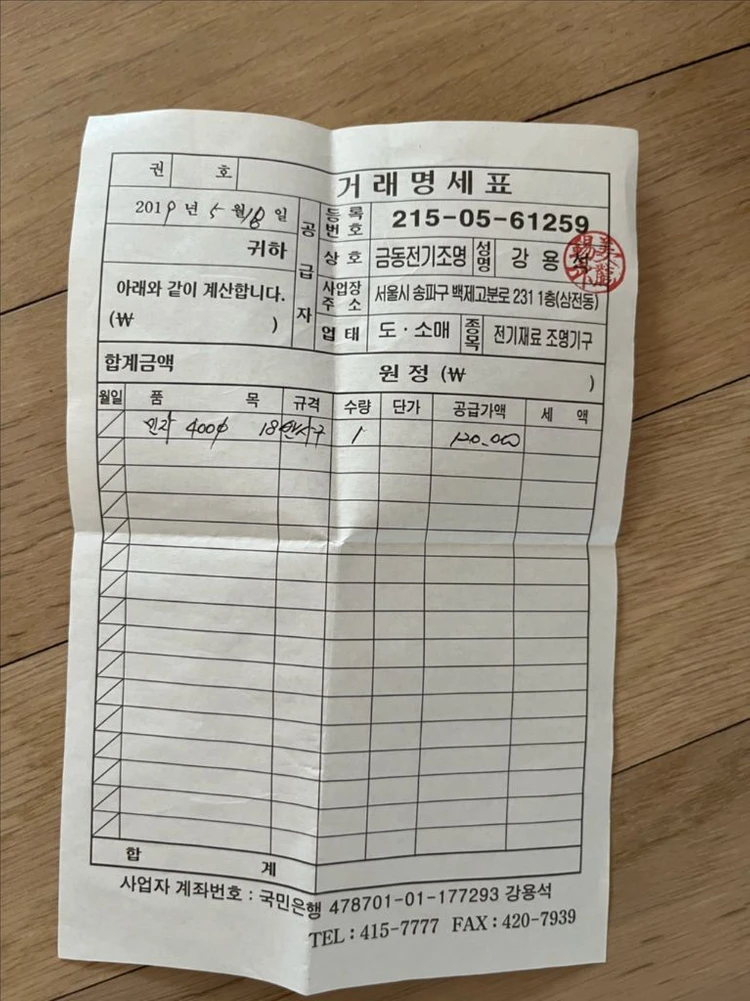 권 호
거래명세표
2019년 5월 18일
귀하
아래와 같이 계산합니다.
(₩ )
공급자
등록번호 215-05-61259
상호 금동전기조명 성명 강용석
사업장주소 서울시 송파구 백제고분로 231 1층(삼전동)
업태 도·소매 종목 전기재료 조명기구
합계금액 원정 (₩ )
월일 품목 규격 수량 단가 공급가액 세액
400φ 18 1 120.000
합계
사업자 계좌번호 : 국민은행 478701-01-177293 강용석
TEL : 415-7777 FAX : 420-7939